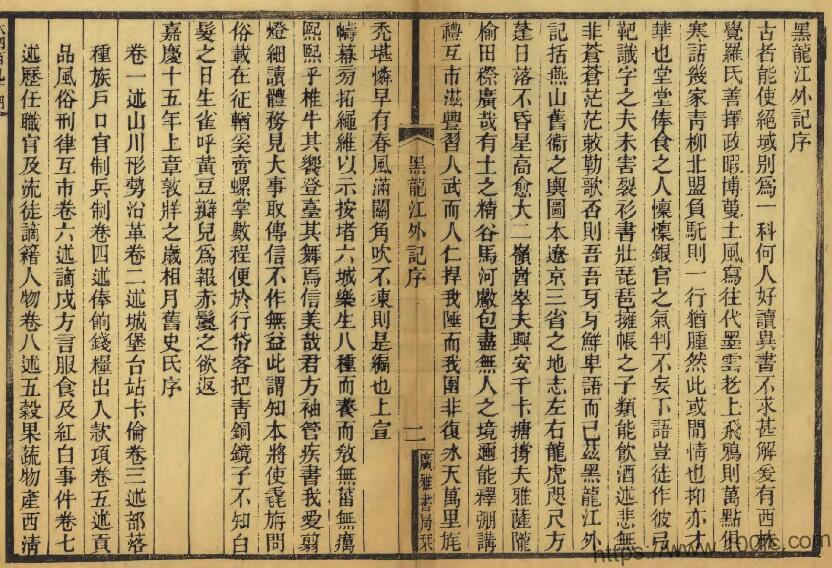 黑龍江外記序
古者能使絕域別爲一科何人好讀異書不求甚解爰有西林
覺羅氏善擇政暇博蒐土風寫往代墨雲老上飛鴉則萬點俱
寒話幾家靑柳北盟負馲則一行猶腫然此或閒情也抑亦才
華也堂堂俸食之人懍懍銀官之氣判不妄下語豈徒作彼弓
靶識字之夫未害裂衫書壯琵琶擁帳之子類能飮酒述悲無
非蒼蒼茫茫敕勒歌否則吾吾牙牙鮮卑語而已茲黑龍江外
記括燕山舊衞之輿圖本遼京三省之地志左右龍虎咫尺方
蓬日落不昏星高愈大二嶺崒夫興安千卡搪撐夫雅薩隴
榆田檪廣哉有土之精谷馬河敝包盡無人之境邇能釋弸講
禮互市滋豐習人武而人仁捍我陲而我圉非復氷天萬里旄
禿堪憐早有春風滿關角吹不凍則是編也上宣
幬幕刕拓繩維以示按堵六城樂生八種而養而敎無菑無癘
熙熙乎椎牛其饗登臺其舞焉信美哉君方袖管疾書我愛翦
燈細讀體務見大事取傳信不作無益此謂知本將使毳旃問
俗載在征輶奚啻螺掌數程便於行帒客把靑銅鏡子不知白
髮之日生雀呼黃豆瓣兒爲報赤鬉之欲返
嘉慶十五年上章敦牂之歲相月舊史氏序
卷一述山川形勢沿革卷二述城堡台站卡倫卷三述部落
種族戶口官制兵制卷四述俸餉錢糧出入款項卷五述貢
品風俗刑律互市卷六述謫戍方言服食及紅白事件卷七
述歷任職官及流徒謫籍人物卷八述五穀果蔬物產西淸
黑龍江外記序
二
廣雅書局栞